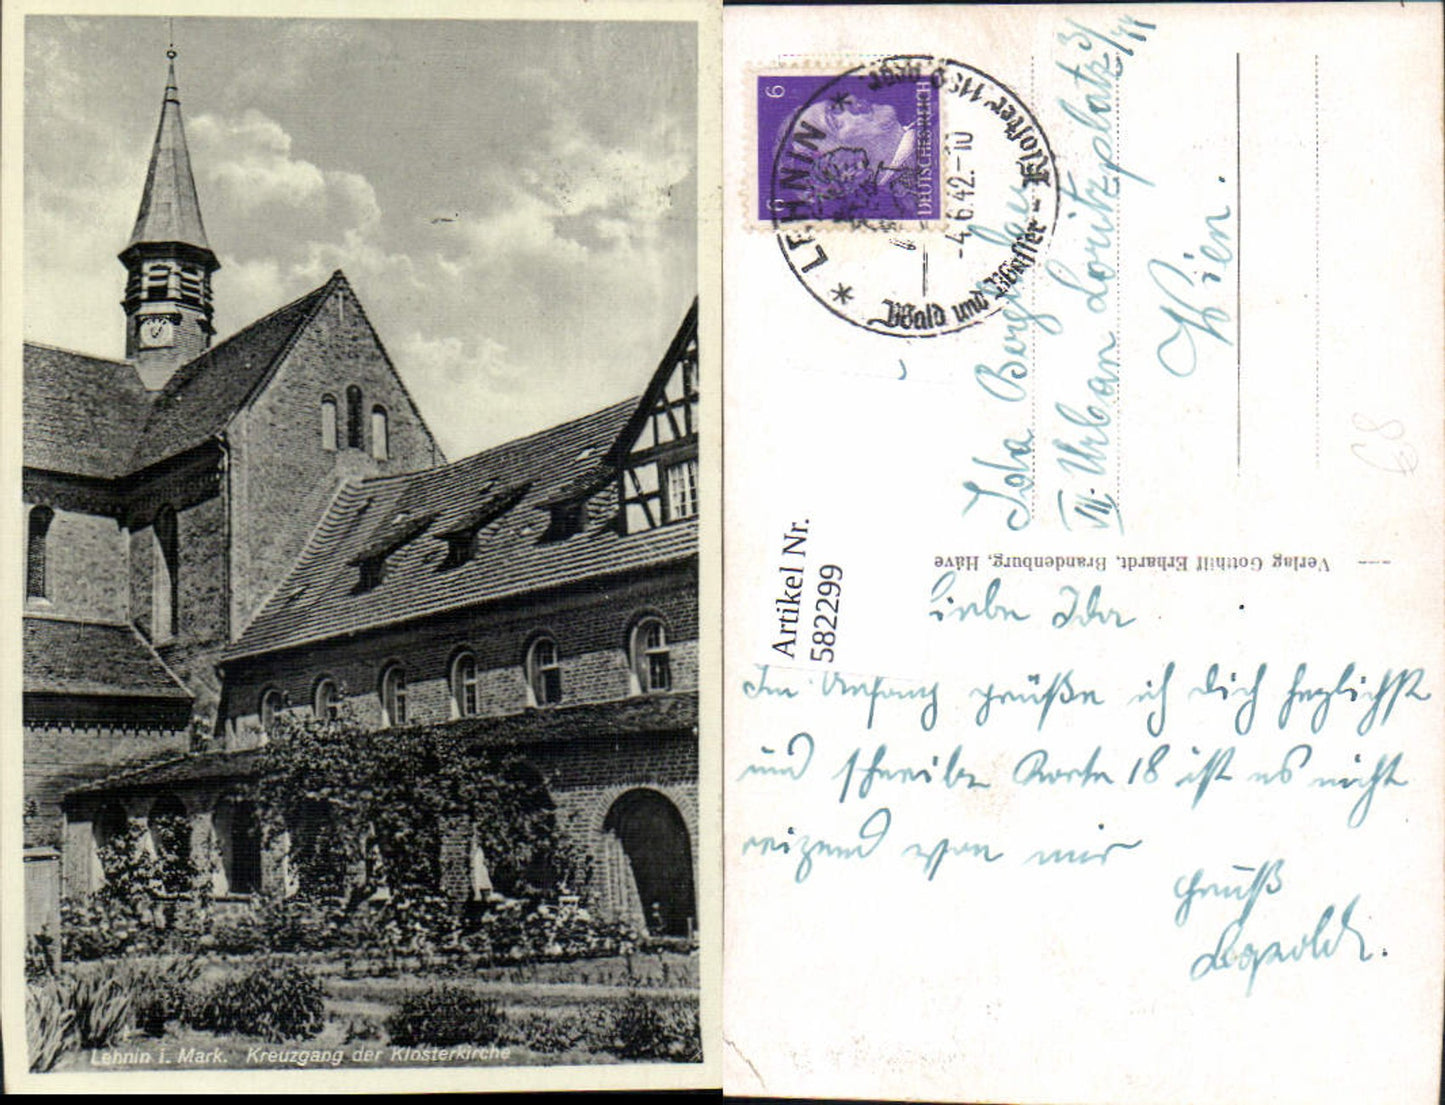 Lehnin i. Mark. Kreuzgang der Klosterkirche
6
6
DEUTSCHES REICH
* LEHNIN *
-4.6.42.-10
Wald und Wasser - Kloster 1180 gegr.
Ida
VII. Urban Loritzplatz 3/
Wien.
68
Artikel Nr.
582299
Verlag Gotthilf Erhardt, Brandenburg, Häve
Liebe Ida
Im Anfang grüße ich dich herzlichst
und schreibe Karte 18 ist es nicht
reizend von mir
Gruß
Leopold.